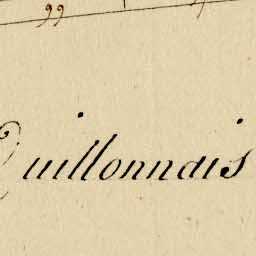 99
Quillonnais